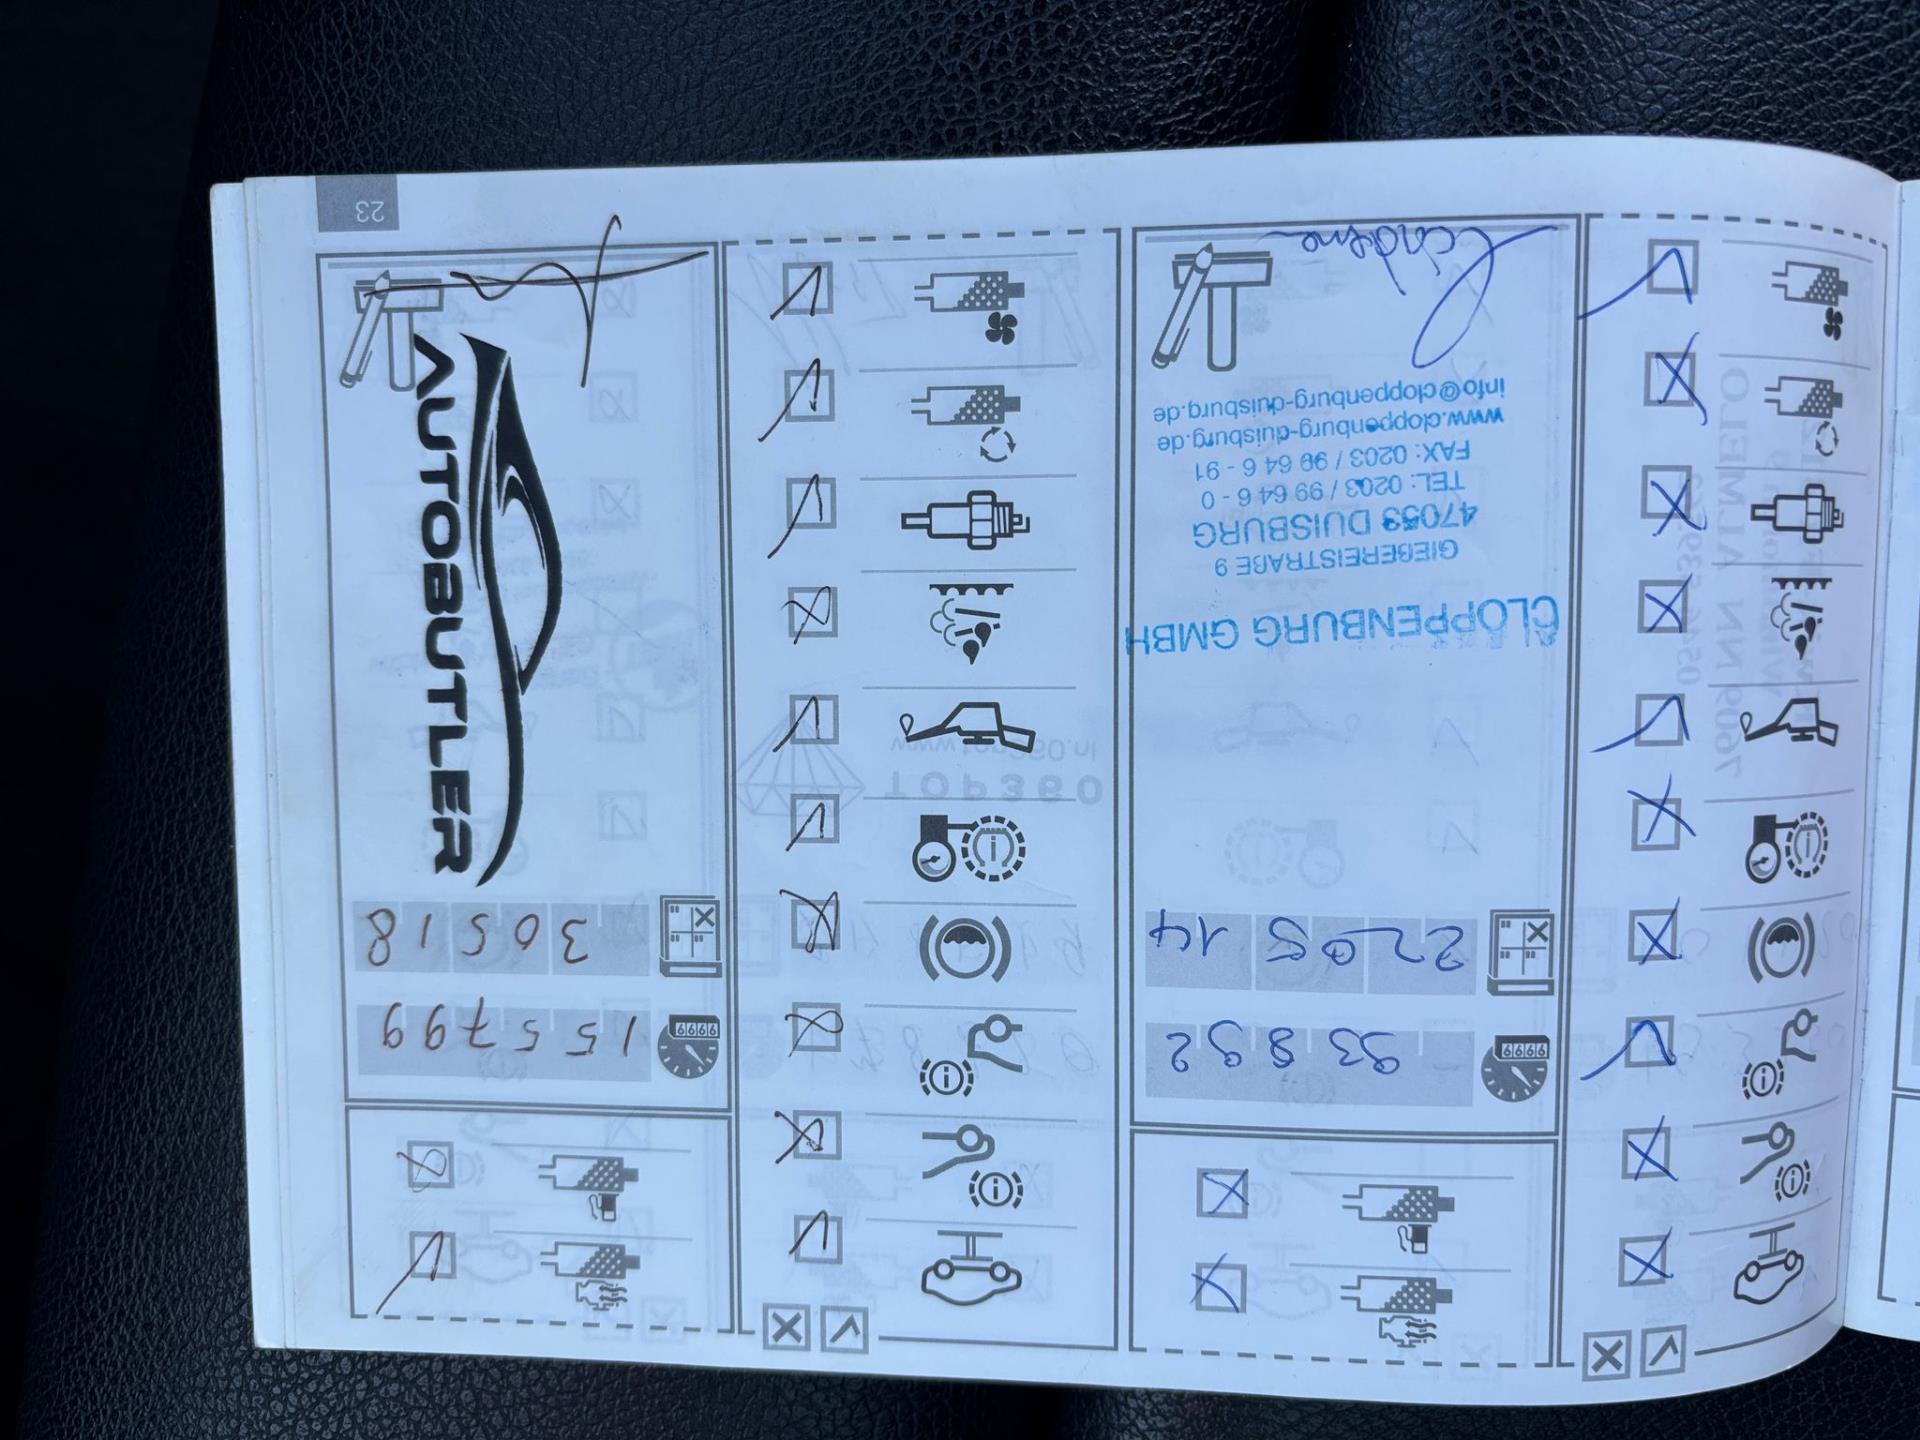 93892
220514
CLOPPENBURG GMBH
GIEßEREISTRAßE 9
47053 DUISBURG
TEL: 0203 / 99 64 6 - 0
FAX: 0203 / 99 64 6 - 91
www.cloppenburg-duisburg.de
info@cloppenburg-duisburg.de
155799
30518
AUTOBUTLER
23